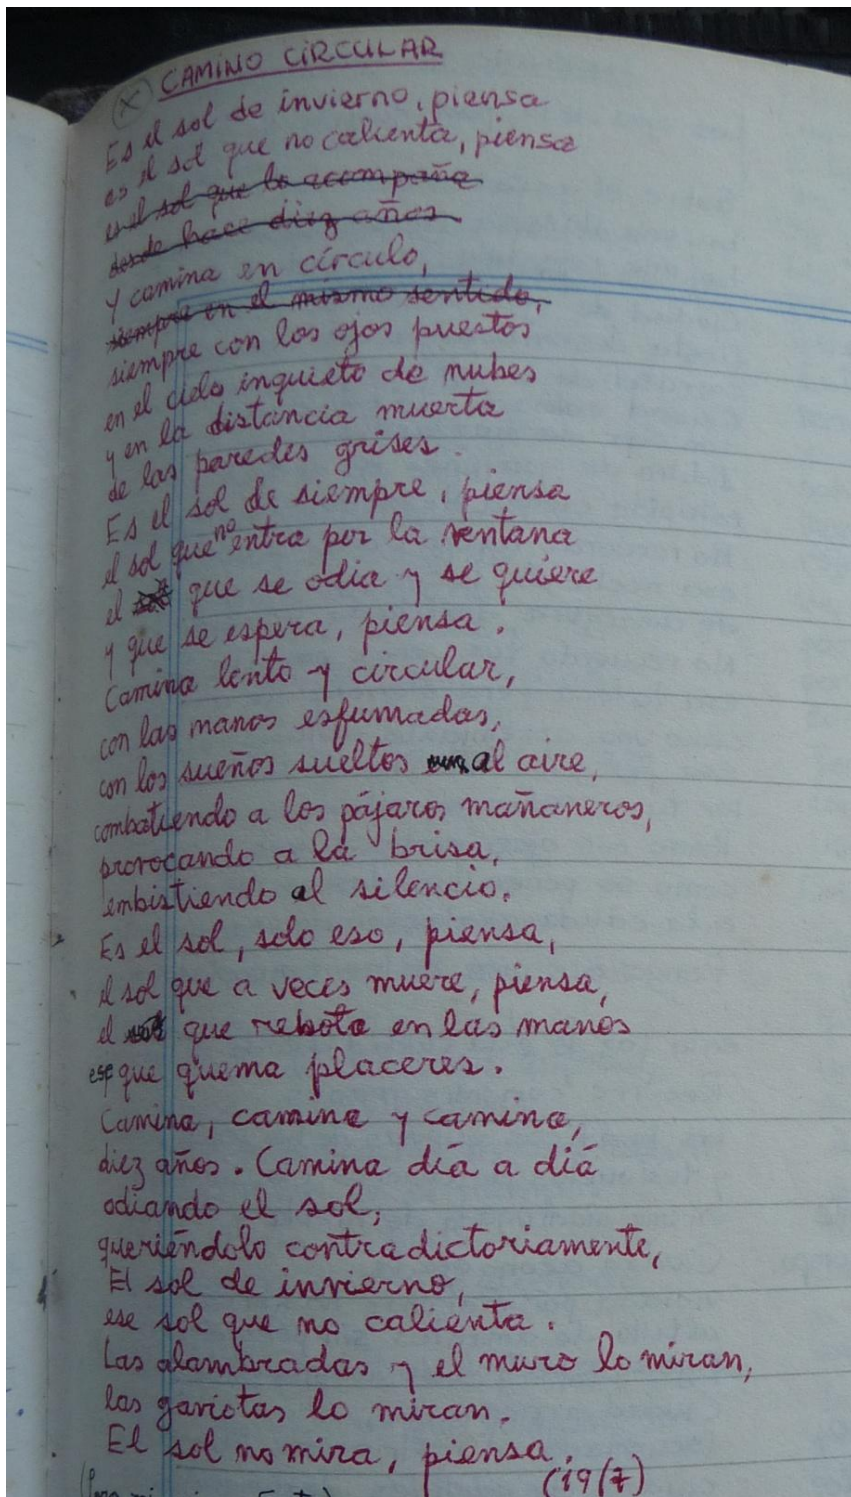 (X) CAMINO CIRCULAR
Es el sol de invierno, piensa
es el sol que no calienta, piensa
es el sol que lo acompaña
desde hace diez años
y camina en círculo,
siempre en el mismo sentido,
siempre con los ojos puestos
en el cielo inquieto de nubes
y en la distancia muerta
de las paredes grises.
Es el sol de siempre, piensa
el sol que no entra por la ventana
el que se odia y se quiere
y que se espera, piensa.
Camina lento y circular,
con las manos esfumadas,
con los sueños sueltos al aire,
combatiendo a los pájaros mañaneros,
provocando a la brisa,
embistiendo al silencio.
Es el sol, solo eso, piensa,
el sol que a veces muere, piensa,
el que rebota en las manos
ese que quema placeres.
Camina, camina y camina,
diez años. Camina día a día
odiando el sol,
queriéndolo contradictoriamente,
El sol de invierno,
ese sol que no calienta.
Las alambradas y el muro lo miran,
las gaviotas lo miran.
El sol no mira, piensa.
(19/7)